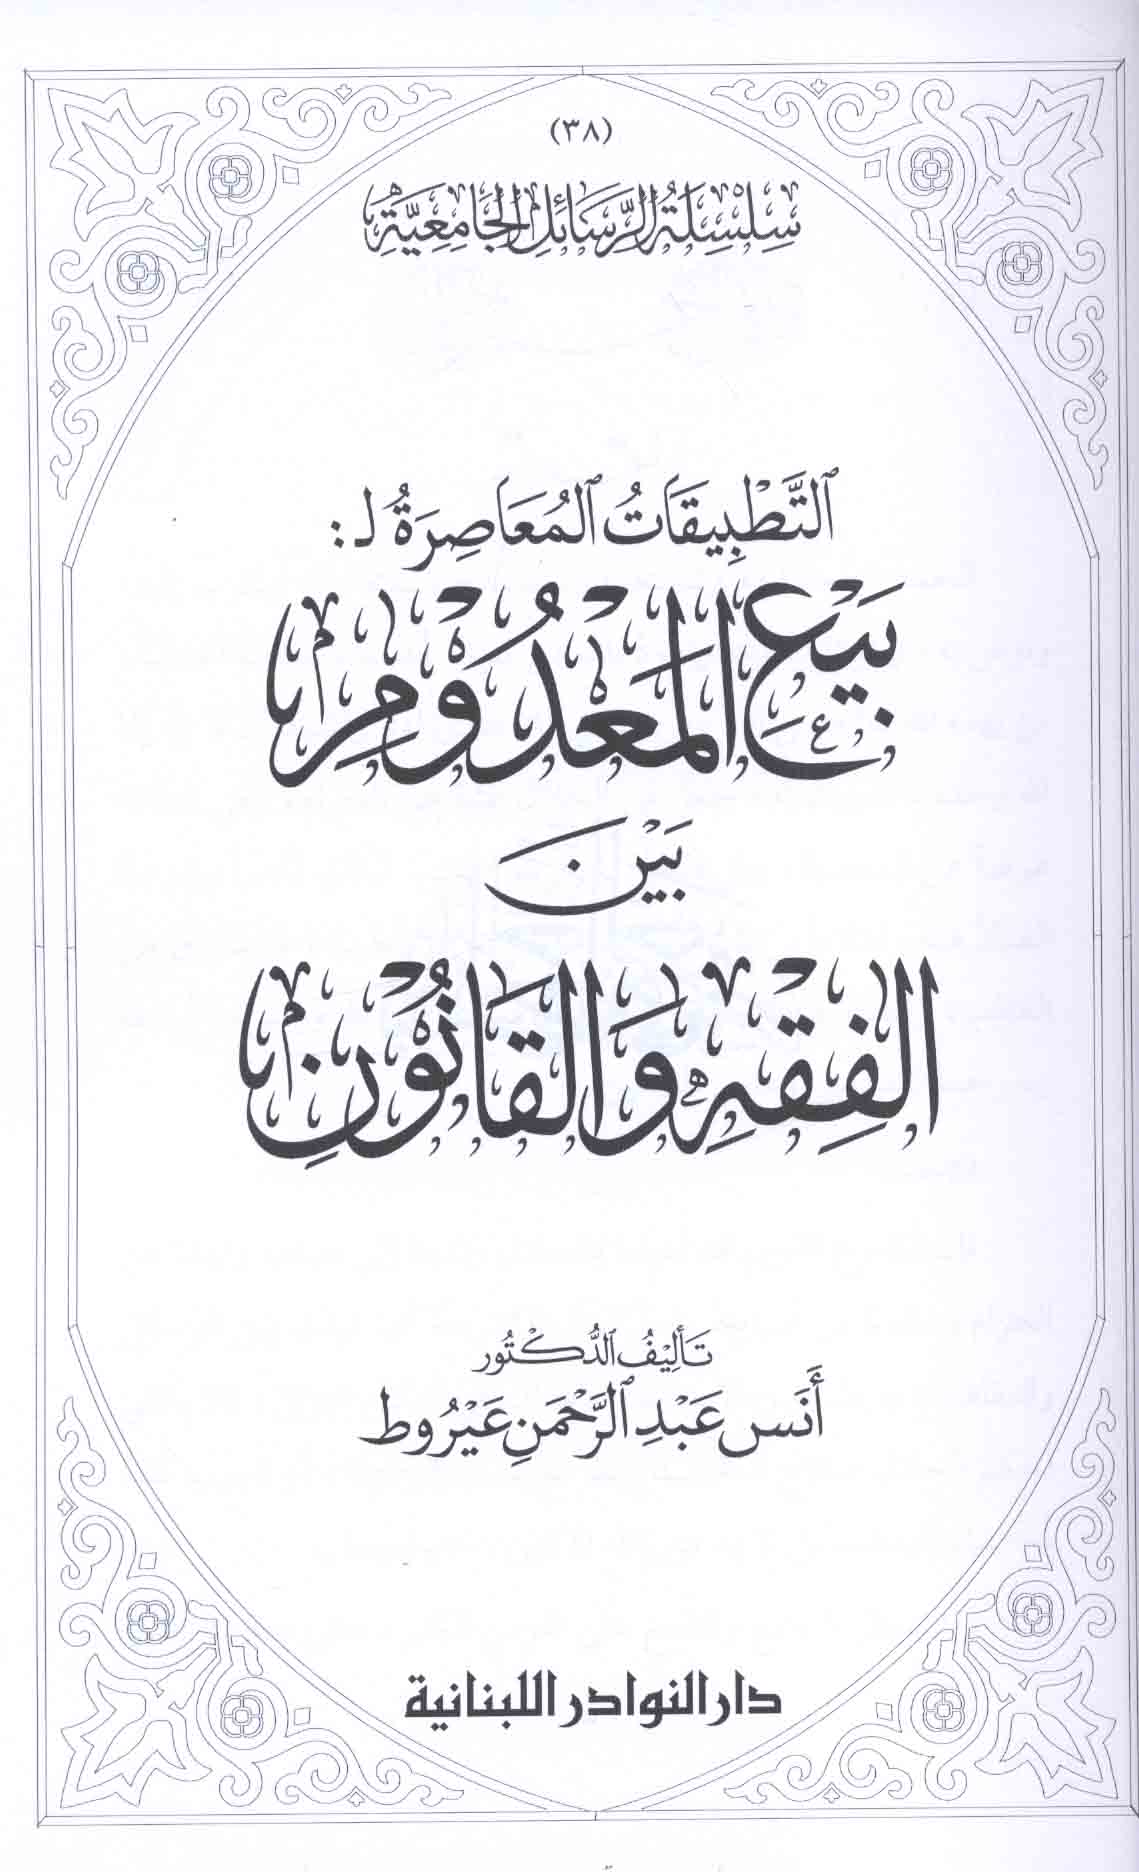 (٣٨)
سِلْسِلَةُ الرَّسَائِلِ الْجَامِعِيَّةِ
التَّطْبِيقَاتُ الْمُعَاصِرَةُ لـ :
بَيْعِ الْمَعْدُوْمِ
بَيْنَ
الفِقْهِ وَالقَانُوْنِ
تَأْلِيْفُ الدُّكْتُور
أَنَس عَبْدِ الرَّحْمَنِ عَيْرُوط
دار النوادر اللبنانية